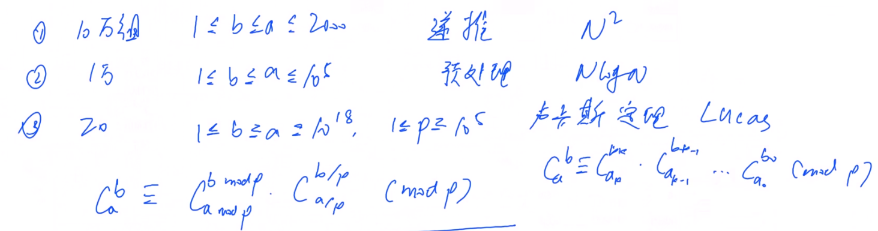 ① 10万组 1≤b≤a≤2000 递推 N²
② 1万 1≤b≤a≤10⁵ 预处理 NlogN
③ 20 1≤b≤a≤10¹⁸, 1≤p≤10⁵ 卢卡斯定理 Lucas
C_a^b ≡ C_{a mod p}^{b mod p} · C_{a/p}^{b/p} (mod p) C_a^b ≡ C_{a_k}^{b_k} · C_{a_{k-1}}^{b_{k-1}} … C_{a_0}^{b_0} (mod p)